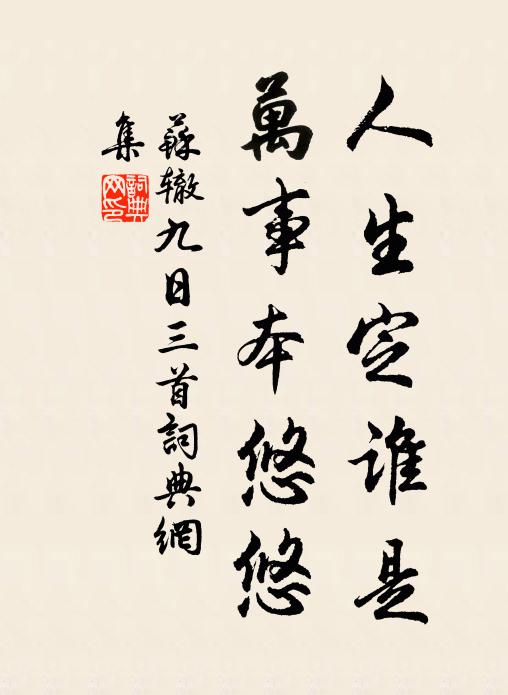 人生定谁是
萬事本悠悠
蘇辙九日三首詞典網
集
詞典
网印